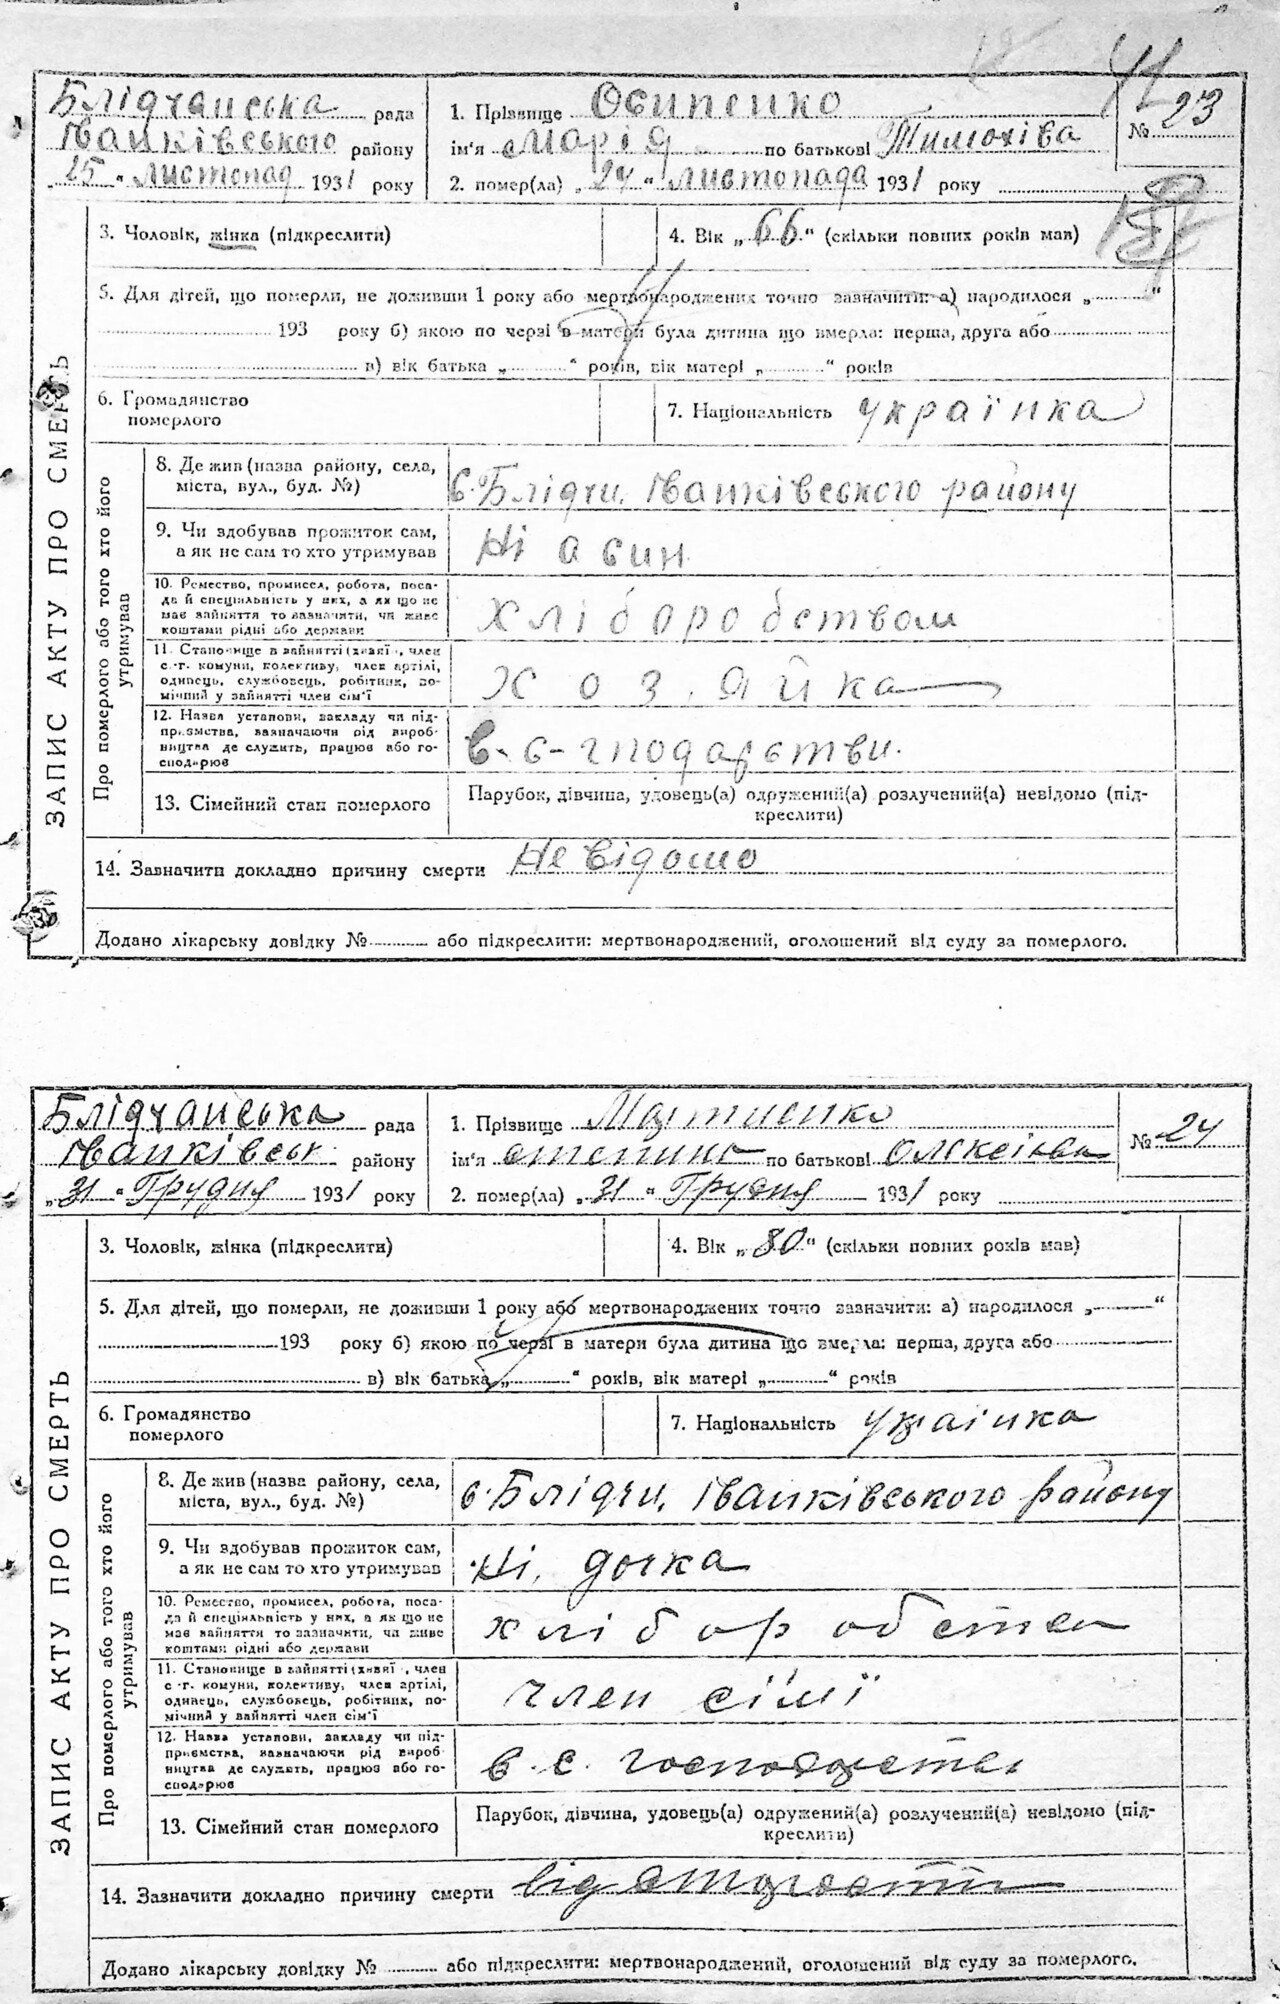 41
Блідчанська рада
Іванківського району
„ 25 “ листопад 1931 року
1. Прізвище Осипенко
ім'я Марія по батькові Тимохіва
2. помер(ла) „ 24 “ листопада 1931 року
№ 23
ЗАПИС АКТУ ПРО СМЕРТЬ
3. Чоловік, жінка (підкреслити)
4. Вік „ 66 “ (скільки повних років мав)
5. Для дітей, що померли, не доживши 1 року або мертвонароджених точно зазначити: а) народилося „ “
193 року б) якою по черзі в матери була дитина що вмерла: перша, друга або
в) вік батька „ “ років, вік матері „ “ років
6. Громадянство
померлого
7. Національність українка
Про померлого або того хто його
утримував
8. Де жив (назва району, села,
міста, вул., буд. №)
с. Блідчи, Іванківського району
9. Чи здобував прожиток сам,
а як не сам то хто утримував
Ні а син
10. Ремество, промисел, робота, поса-
да й спеціяльність у них, а як що не
має зайняття то зазначити, чи живе
коштами рідні або держави
хліборобством
11. Становище в зайнятті (хазяї, член
с.-г. комуни, колективу, член артілі,
одинець, службовець, робітник, по-
мічний у зайнятті член сім'ї
хоз.яйка
12. Назва установи, закладу чи під-
приємства, зазначаючи рід вироб-
ництва де служить, працює або го-
сподарює
в-с-гподарстви.
13. Сімейний стан померлого
Парубок, дівчина, удовець(а) одружений(а) розлучений(а) невідомо (під-
креслити)
14. Зазначити докладно причину смерти Не відомо
Додано лікарську довідку № або підкреслити: мертвонароджений, оголошений від суду за померлого.
Блідчанська рада
Іванківськ. району
„ 31 “ Грудня 1931 року
1. Прізвище Мартиенко
ім'я степина по батькові Олексіива
2. помер(ла) „ 31 “ Грудня 1931 року
№ 24
ЗАПИС АКТУ ПРО СМЕРТЬ
3. Чоловік, жінка (підкреслити)
4. Вік „ 80 “ (скільки повних років мав)
5. Для дітей, що померли, не доживши 1 року або мертвонароджених точно зазначити: а) народилося „ “
193 року б) якою по черзі в матери була дитина що вмерла: перша, друга або
в) вік батька „ “ років, вік матері „ “ років
6. Громадянство
померлого
7. Національність украінка
Про померлого або того хто його
утримував
8. Де жив (назва району, села,
міста, вул., буд. №)
с. Блідчи, Іванківського району
9. Чи здобував прожиток сам,
а як не сам то хто утримував
Ні, дочка
10. Ремество, промисел, робота, поса-
да й спеціяльність у них, а як що не
має зайняття то зазначити, чи живе
коштами рідні або держави
хліборобство
11. Становище в зайнятті (хазяї, член
с.-г. комуни, колективу, член артілі,
одинець, службовець, робітник, по-
мічний у зайнятті член сім'ї
член сімї
12. Назва установи, закладу чи під-
приємства, зазначаючи рід вироб-
ництва де служить, працює або го-
сподарює
в. с. господарстві
13. Сімейний стан померлого
Парубок, дівчина, удовець(а) одружений(а) розлучений(а) невідомо (під-
креслити)
14. Зазначити докладно причину смерти від старости
Додано лікарську довідку № або підкреслити: мертвонароджений, оголошений від суду за померлого.